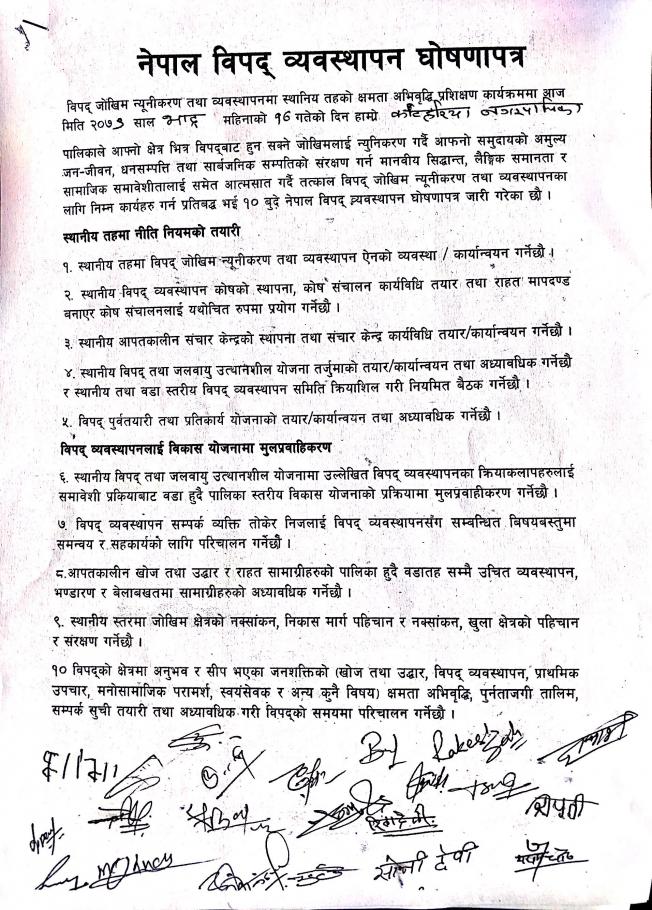 नेपाल विपद् व्यवस्थापन घोषणापत्र
विपद् जोखिम न्यूनीकरण तथा व्यवस्थापनमा स्थानिय तहको क्षमता अभिवृद्धि प्रशिक्षण कार्यक्रममा आज
मिति २०७९ साल भाद्र महिनाको १६ गतेको दिन हामी कटहरिया नगरपालिका
पालिकाले आफ्नो क्षेत्र भित्र विपद्बाट हुन सक्ने जोखिमलाई न्युनिकरण गर्दै आफनो समुदायको अमुल्य
जन-जीवन, धनसम्पत्ति तथा सार्बजनिक सम्पतिको संरक्षण गर्न मानवीय सिद्धान्त, लैङ्गिक समानता र
सामाजिक समावेशीतालाई समेत आत्मसात गर्दै तत्काल विपद् जोखिम न्यूनीकरण तथा व्यवस्थापनका
लागि निम्न कार्यहरु गर्न प्रतिबद्ध भई १० बुदे नेपाल विपद् व्यवस्थापन घोषणापत्र जारी गरेका छौ ।
स्थानीय तहमा नीति नियमको तयारी
१. स्थानीय तहमा विपद् जोखिम न्यूनीकरण तथा व्यवस्थापन ऐनको व्यवस्था / कार्यान्वयन गर्नेछौ ।
२. स्थानीय विपद् व्यवस्थापन कोषको स्थापना, कोष संचालन कार्यविधि तयार तथा राहत मापदण्ड
बनाएर कोष संचालनलाई यथोचित रुपमा प्रयोग गर्नेछौ ।
३. स्थानीय आपतकालीन संचार केन्द्रको स्थापना तथा संचार केन्द्र कार्यविधि तयार/कार्यान्वयन गर्नेछौ ।
४. स्थानीय विपद् तथा जलवायु उत्थानशील योजना तर्जुमाको तयार/कार्यान्वयन तथा अध्यावधिक गर्नेछौ
र स्थानीय तथा वडा स्तरीय विपद् व्यवस्थापन समिति क्रियाशिल गरी नियमित बैठक गर्नेछौ ।
५. विपद् पुर्वतयारी तथा प्रतिकार्य योजनाको तयार/कार्यान्वयन तथा अध्यावधिक गर्नेछौ ।
विपद् व्यवस्थापनलाई विकास योजनामा मुलप्रवाहिकरण
६. स्थानीय विपद् तथा जलवायु उत्थानशील योजनामा उल्लेखित विपद् व्यवस्थापनका क्रियाकलापहरुलाई
समावेशी प्रकियाबाट वडा हुदै पालिका स्तरीय विकास योजनाको प्रक्रियामा मुलप्रवाहीकरण गर्नेछौ ।
७. विपद् व्यवस्थापन सम्पर्क व्यक्ति तोकेर निजलाई विपद् व्यवस्थापनसंग सम्बन्धित बिषयबस्तुमा
समन्वय र सहकार्यको लागि परिचालन गर्नेछौ ।
८.आपतकालीन खोज तथा उद्धार र राहत सामाग्रीहरुको पालिका हुदै वडातह सम्मै उचित व्यवस्थापन,
भण्डारण र बेलाबखतमा सामाग्रीहरुको अध्यावधिक गर्नेछौ ।
९. स्थानीय स्तरमा जोखिम क्षेत्रको नक्सांकन, निकास मार्ग पहिचान र नक्सांकन, खुला क्षेत्रको पहिचान
र संरक्षण गर्नेछौ ।
१० विपद्को क्षेत्रमा अनुभव र सीप भएका जनशक्तिको (खोज तथा उद्धार, विपद् व्यवस्थापन, प्राथमिक
उपचार, मनोसामाजिक परामर्श, स्वयंसेवक र अन्य कुनै विषय) क्षमता अभिवृद्धि, पुर्नताजगी तालिम,
सम्पर्क सुची तयारी तथा अध्यावधिक गरी विपद्को समयमा परिचालन गर्नेछौ ।
सोनी देवी